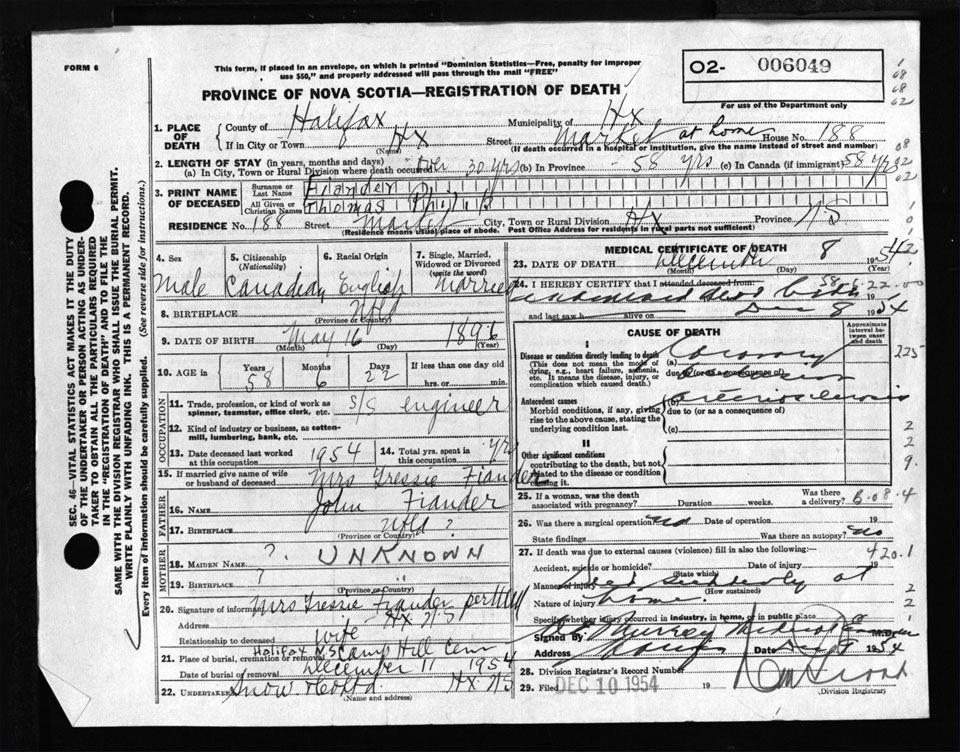 FORM 6
This form, if placed in an envelope, on which is printed "Dominion Statistics—Free, penalty for improper
use $50," and properly addressed will pass through the mail "FREE"
O2- 006049
PROVINCE OF NOVA SCOTIA—REGISTRATION OF DEATH
For use of the Department only
1. PLACE OF DEATH
County of Halifax Municipality of Hx
If in City or Town Hx Street Market at home House No. 188
(Name) (If death occurred in a hospital or institution, give the name instead of street and number)
2. LENGTH OF STAY (in years, months and days)
(a) In City, Town or Rural Division where death occurred 30 yrs (b) In Province 58 yrs (c) In Canada (if immigrant) 58 yrs
3. PRINT NAME OF DECEASED
Surname or Last Name Fiander
All Given or Christian Names Thomas Philip
RESIDENCE No. 188 Street Market City, Town or Rural Division Hx Province N.S
(Residence means usual place of abode. Post Office Address for residents in rural parts not sufficient)
4. Sex Male
5. Citizenship (Nationality) Canadian
6. Racial Origin English
7. Single, Married, Widowed or Divorced (write the word) Married
8. BIRTHPLACE Nfld
(Province or Country)
9. DATE OF BIRTH May 16 1896
(Month) (Day) (Year)
10. AGE in Years 58 Months 6 Days 22 If less than one day old
hrs. or min.
OCCUPATION
11. Trade, profession, or kind of work as spinner, teamster, office clerk, etc. S/S engineer
12. Kind of industry or business, as cotton-mill, lumbering, bank, etc.
13. Date deceased last worked at this occupation 1954
14. Total yrs. spent in this occupation yrs
15. If married give name of wife or husband of deceased Mrs Tressie Fiander
FATHER
16. Name John Fiander
17. Birthplace Nfld ?
(Province or Country)
MOTHER
18. MAIDEN NAME ? UNKNOWN
19. BIRTHPLACE ?
(Province or Country)
20. Signature of informant Mrs Tressie Fiander
Address Hx NS
Relationship to deceased wife
21. Place of burial, cremation or removal Halifax N.S Camp Hill Cem
Date of burial or removal December 11 1954
22. Undertaker Snow & Co Ltd Hx NS
(Name and address)
MEDICAL CERTIFICATE OF DEATH
23. DATE OF DEATH December 8 1954
(Month) (Day) (Year)
24. I HEREBY CERTIFY that I attended deceased from:
and last saw h alive on Dec 8 1954
CAUSE OF DEATH
Approximate interval between onset and death
I
Disease or condition directly leading to death
(This does not mean the mode of dying, e.g., heart failure, asthenia, etc. It means the disease, injury, or complication which caused death.)
(a) Coronary
due to (or as a consequence of)
Antecedent causes
Morbid conditions, if any, giving rise to the above cause, stating the underlying condition last.
(b) arteriosclerosis
due to (or as a consequence of)
(c)
II
Other significant conditions
contributing to the death, but not related to the disease or condition causing it.
25. If a woman, was the death associated with pregnancy? Duration weeks. Was there a delivery?
26. Was there a surgical operation? no Date of operation 19
State findings Was there an autopsy? no
27. If death was due to external causes (violence) fill in also the following:—
Accident, suicide or homicide? Date of injury 19
(State which)
Manner of injury died suddenly at
(How sustained)
Nature of injury home.
Specify whether injury occurred in industry, in home, or in public place
Signed By Murray
Address Date Dec 8 1954
28. Division Registrar's Record Number
29. Filed DEC 10 1954 19
(Division Registrar)
SEC. 46—VITAL STATISTICS ACT MAKES IT THE DUTY
OF THE UNDERTAKER OR PERSON ACTING AS UNDER-
TAKER TO OBTAIN ALL THE PARTICULARS REQUIRED
IN THE "REGISTRATION OF DEATH" AND TO FILE THE
SAME WITH THE DIVISION REGISTRAR WHO SHALL ISSUE THE BURIAL PERMIT.
WRITE PLAINLY WITH UNFADING INK. THIS IS A PERMANENT RECORD.
Every item of information should be carefully supplied. (See reverse side for instructions.)